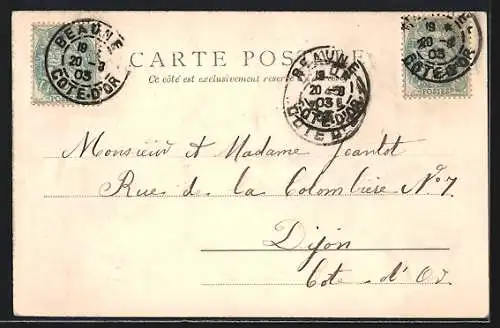 BEAUNE
19
20 -9
03
COTE-D'OR
CARTE POSTALE
Ce côté est exclusivement réservé
BEAUNE
20 -9
03
COTE-D'OR
19
20 -9
03
COTE-D'OR
POSTES
Monsieur et Madame Jeantot
Rue de la Colombière No 7
Dijon
Cote d'Or